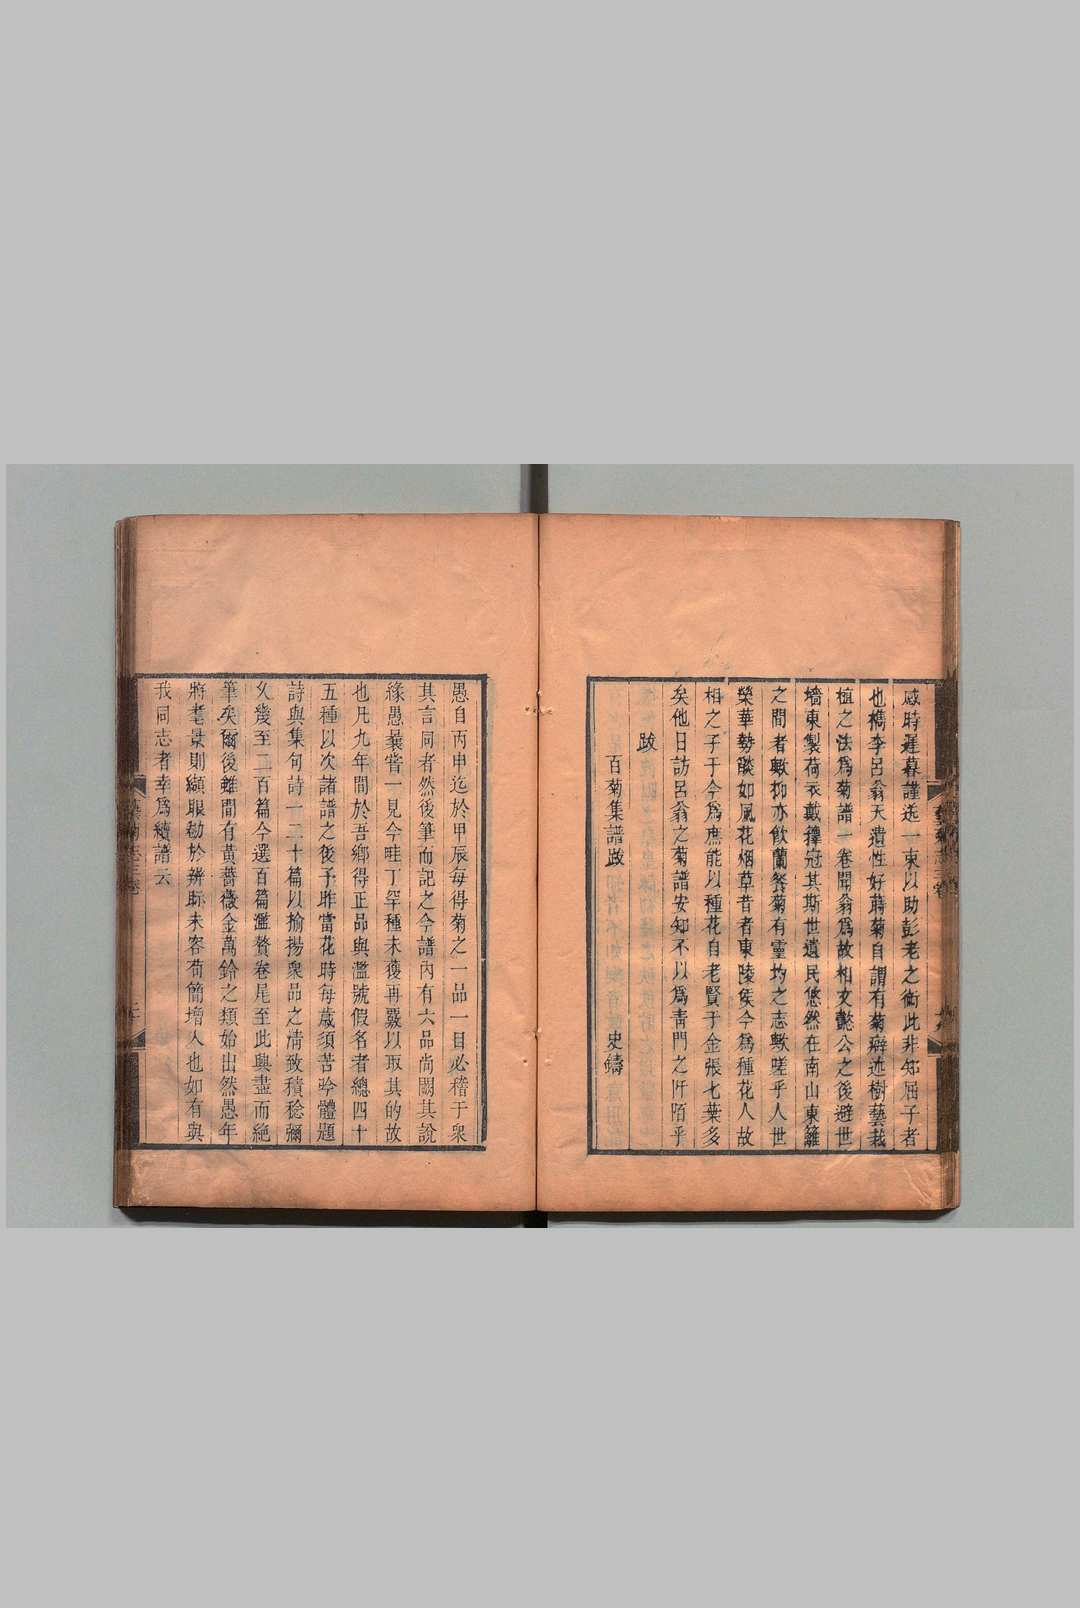 感時遲暮謹送一束以助彭老之銜此非知屈子者
也檇李呂翁天遺性好蒔菊自謂有菊癖述樹藝栽
植之法爲菊譜一卷聞翁爲故相文懿公之後避世
墻東製荷衣戴籜冠其斯世遺民悠然在南山東籬
之間者歟抑亦飲蘭餐菊有靈均之志歟嗟乎人世
榮華勢燄如風花烟草昔者東陵侯今爲種花人故
相之子于今爲庶能以種花自老賢于金張七葉多
矣他日訪呂翁之菊譜安知不以爲靑門之阡陌乎
跋
百菊集譜跋 史鑄
愚自丙申迄於甲辰每得菊之一品一目必稽于衆
其言同者然後筆而記之今譜內有六品尚闕其說
緣愚曩嘗一見今畦丁罕種未獲再覈以取其的故
也凡九年間於吾鄉得正品與濫號假名者總四十
五種以次諸譜之後予昨當花時每歲須苦吟體題
詩與集句詩一二十篇以揄揚衆品之淸致積稔彌
久幾至二百篇今選百篇濫贅卷尾至此興盡而絕
筆矣爾後雖間有黃薔薇金萬鈴之類始出然愚年
將耄景則纈眼勌於辨眎未容苟簡增入也如有與
我同志者幸爲續譜云
藝菊志三卷